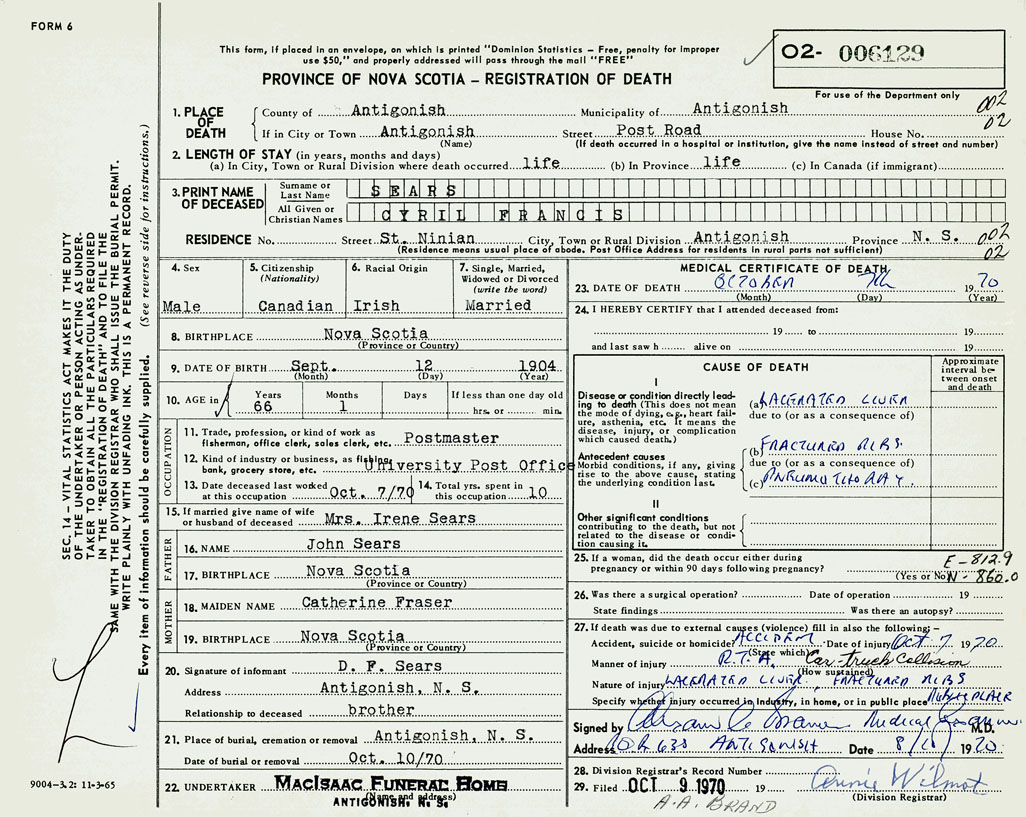 FORM 6
This form, if placed in an envelope, on which is printed "Dominion Statistics – Free, penalty for improper
use $50," and properly addressed will pass through the mail "FREE"
PROVINCE OF NOVA SCOTIA – REGISTRATION OF DEATH
O2- 006129
For use of the Department only
002
02
1. PLACE OF DEATH
County of Antigonish Municipality of Antigonish
If in City or Town Antigonish Street Post Road House No.
(Name) (If death occurred in a hospital or institution, give the name instead of street and number)
2. LENGTH OF STAY (in years, months and days)
(a) In City, Town or Rural Division where death occurred life (b) In Province life (c) In Canada (if immigrant)
3. PRINT NAME OF DECEASED
Surname or Last Name SEARS
All Given or Christian Names CYRIL FRANCIS
RESIDENCE No. Street St. Ninian City, Town or Rural Division Antigonish Province N. S.
(Residence means usual place of abode. Post Office Address for residents in rural parts not sufficient)
002
02
4. Sex
Male
5. Citizenship
(Nationality)
Canadian
6. Racial Origin
Irish
7. Single, Married,
Widowed or Divorced
(write the word)
Married
8. BIRTHPLACE Nova Scotia
(Province or Country)
9. DATE OF BIRTH Sept. 12 1904
(Month) (Day) (Year)
10. AGE in Years Months Days If less than one day old
66 1 hrs. or min.
OCCUPATION
11. Trade, profession, or kind of work as
fisherman, office clerk, sales clerk, etc. Postmaster
12. Kind of industry or business, as fishing,
bank, grocery store, etc. University Post Office
13. Date deceased last worked
at this occupation Oct. 7/70
14. Total yrs. spent in
this occupation 10
15. If married give name of wife
or husband of deceased Mrs. Irene Sears
FATHER
16. NAME John Sears
17. BIRTHPLACE Nova Scotia
(Province or Country)
MOTHER
18. MAIDEN NAME Catherine Fraser
19. BIRTHPLACE Nova Scotia
(Province or Country)
20. Signature of informant D. F. Sears
Address Antigonish, N. S.
Relationship to deceased brother
21. Place of burial, cremation or removal Antigonish, N. S.
Date of burial or removal Oct. 10/70
22. UNDERTAKER MacIsaac Funeral Home
(Name and address)
ANTIGONISH. N. S.
MEDICAL CERTIFICATE OF DEATH
23. DATE OF DEATH OCTOBER 7th 1970
(Month) (Day) (Year)
24. I HEREBY CERTIFY that I attended deceased from:
19 to 19
and last saw h alive on 19
CAUSE OF DEATH
Approximate interval between onset and death
I
Disease or condition directly leading to death (This does not mean the mode of dying, e.g., heart failure, asthenia, etc. It means the disease, injury, or complication which caused death.)
(a) LACERATED LIVER
due to (or as a consequence of)
Antecedent causes
Morbid conditions, if any, giving rise to the above cause, stating the underlying condition last.
(b) FRACTURED RIBS
due to (or as a consequence of)
(c) PNEUMOTHORAX.
II
Other significant conditions
contributing to the death, but not related to the disease or condition causing it.
25. If a woman, did the death occur either during
pregnancy or within 90 days following pregnancy?
(Yes or No)
E - 812.9
N - 860.0
26. Was there a surgical operation? Date of operation 19
State findings Was there an autopsy?
27. If death was due to external causes (violence) fill in also the following:–
Accident, suicide or homicide? ACCIDENT Date of injury Oct 7 1970
(State which)
Manner of injury R.T.A. Car-truck Collision
(How sustained)
Nature of injury LACERATED LIVER. FRACTURED RIBS
Specify whether injury occurred in industry, in home, or in public place PUBLIC PLACE
Signed by Medical M.D.
Address 630 ANTIGONISH Date 8/10/ 1970
28. Division Registrar's Record Number
29. Filed OCT 9 1970 19 Annie Wilmot
(Division Registrar)
A.A. BRAND
SEC. 14 – VITAL STATISTICS ACT MAKES IT THE DUTY
OF THE UNDERTAKER OR PERSON ACTING AS UNDER-
TAKER TO OBTAIN ALL THE PARTICULARS REQUIRED
IN THE "REGISTRATION OF DEATH" AND TO FILE THE
SAME WITH THE DIVISION REGISTRAR WHO SHALL ISSUE THE BURIAL PERMIT.
WRITE PLAINLY WITH UNFADING INK. THIS IS A PERMANENT RECORD.
Every item of information should be carefully supplied. (See reverse side for instructions.)
9004–3.2: 11-3-65